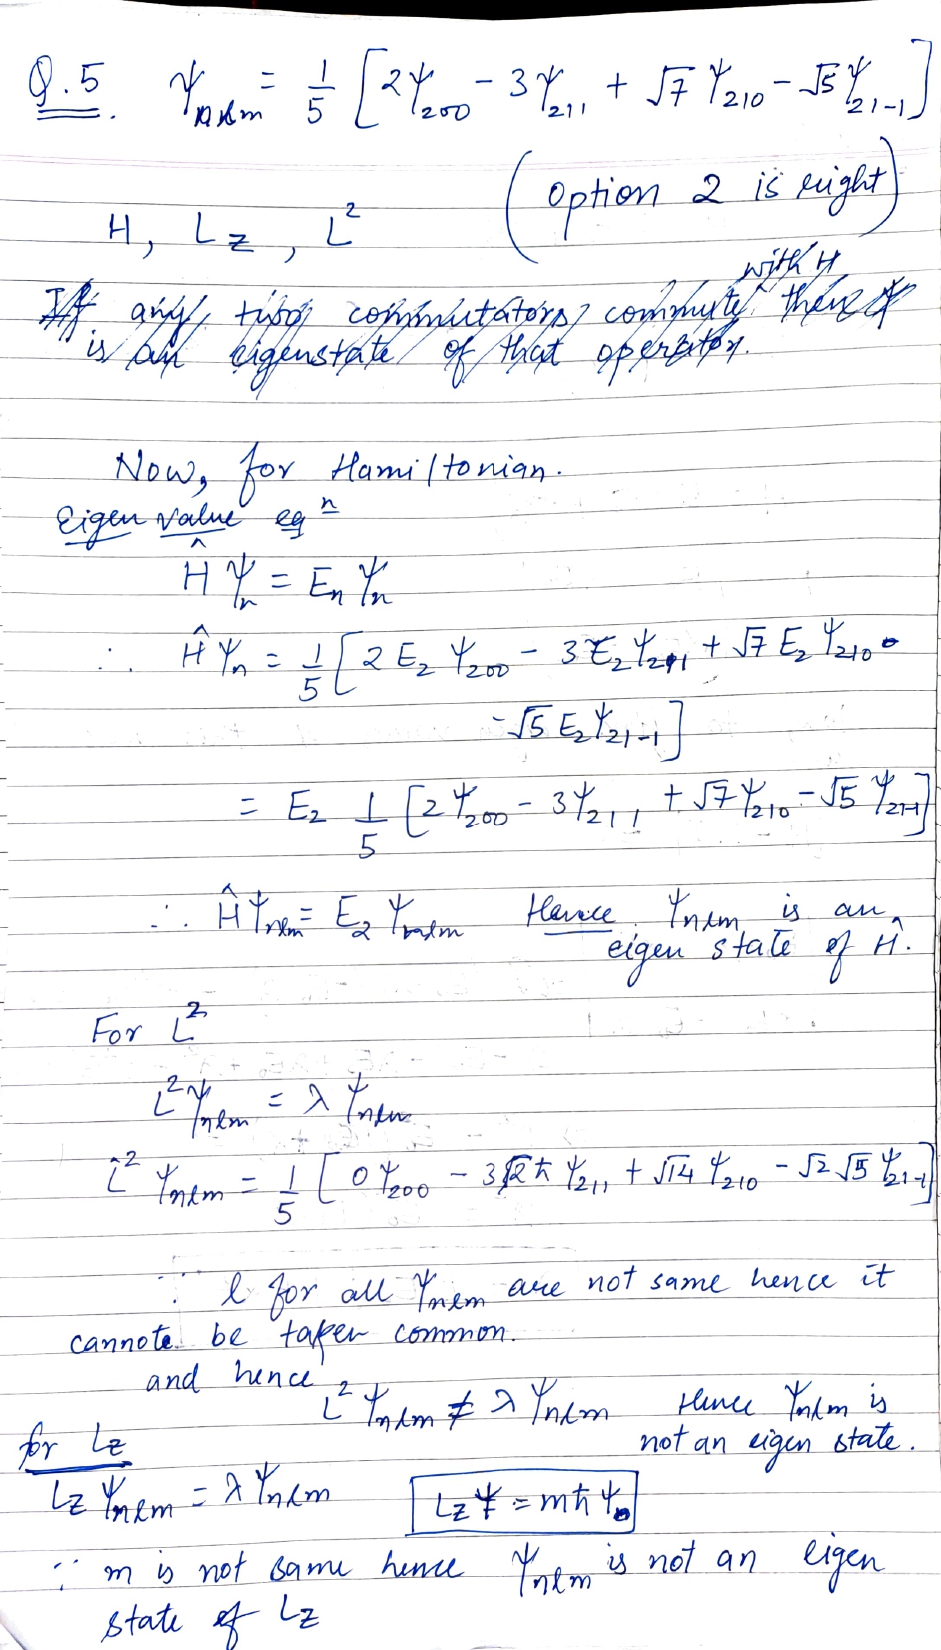 Q.5 ψnlm = 1/5 [2ψ200 - 3ψ211 + √7 ψ210 - √5 ψ21-1]
(option 2 is right)
H, Lz, L²
with H
If any two commutators commute there
is an eigenstate of that operator.
Now, for Hamiltonian.
Eigen value eqn
Ĥψn = En ψn
∴ Ĥψn = 1/5 [2E2 ψ200 - 3E2 ψ211 + √7 E2 ψ210
- √5 E2 ψ21-1]
= E2 1/5 [2ψ200 - 3ψ211 + √7 ψ210 - √5 ψ21-1]
∴ Ĥψnlm = E2 ψnlm Hence ψnlm is an
eigen state of Ĥ.
For L²
L²ψnlm = λ ψnlm
L̂² ψnlm = 1/5 [0ψ200 - 3√2ħ ψ211 + √14 ψ210 - √2 √5 ψ21-1]
∵ l for all ψnlm are not same hence it
cannote be taken common.
and hence
L² ψnlm ≠ λ ψnlm Hence ψnlm is
not an eigen state.
for Lz
Lz ψnlm = λ ψnlm Lz ψ = mħ ψ
∵ m is not same hence ψnlm is not an eigen
state of Lz